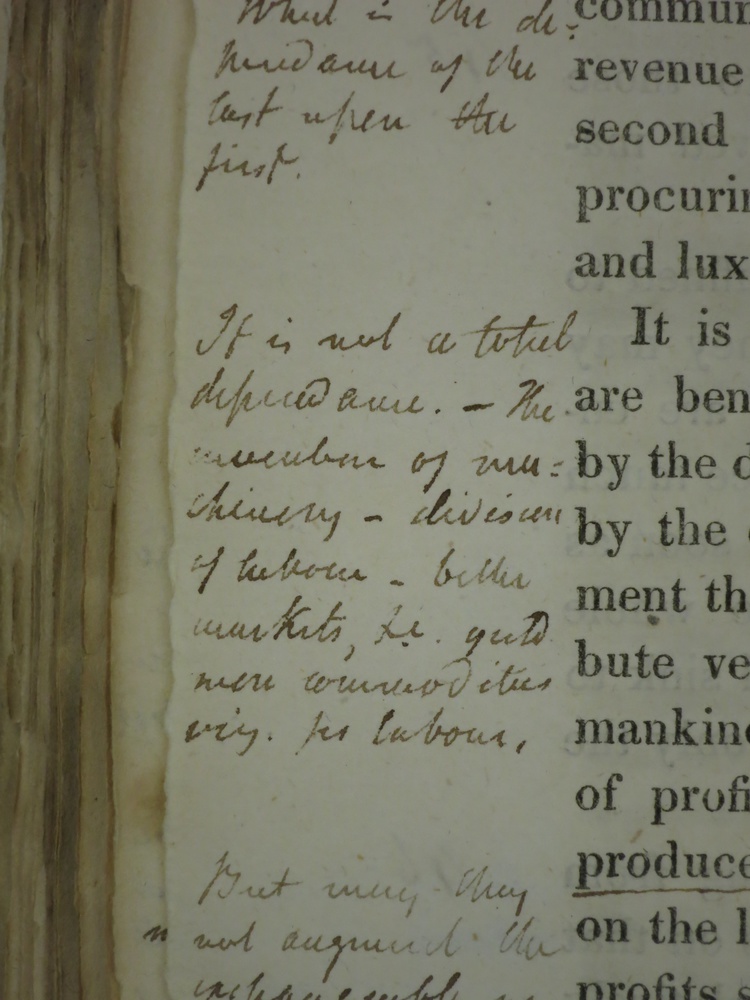 What is the de-
pendance of the
last upon the
first.
It is not a total
dependance. - The
invention of ma=
chinery - division
of labour - better
markets, &c. yield
more commodities
for labour.
But may they
not augment the
exchangeable
commun
revenue
second
procurin
and lux
It is
are ben
by the d
by the
ment th
bute ve
mankind
of profi
produce
on the l
profits s